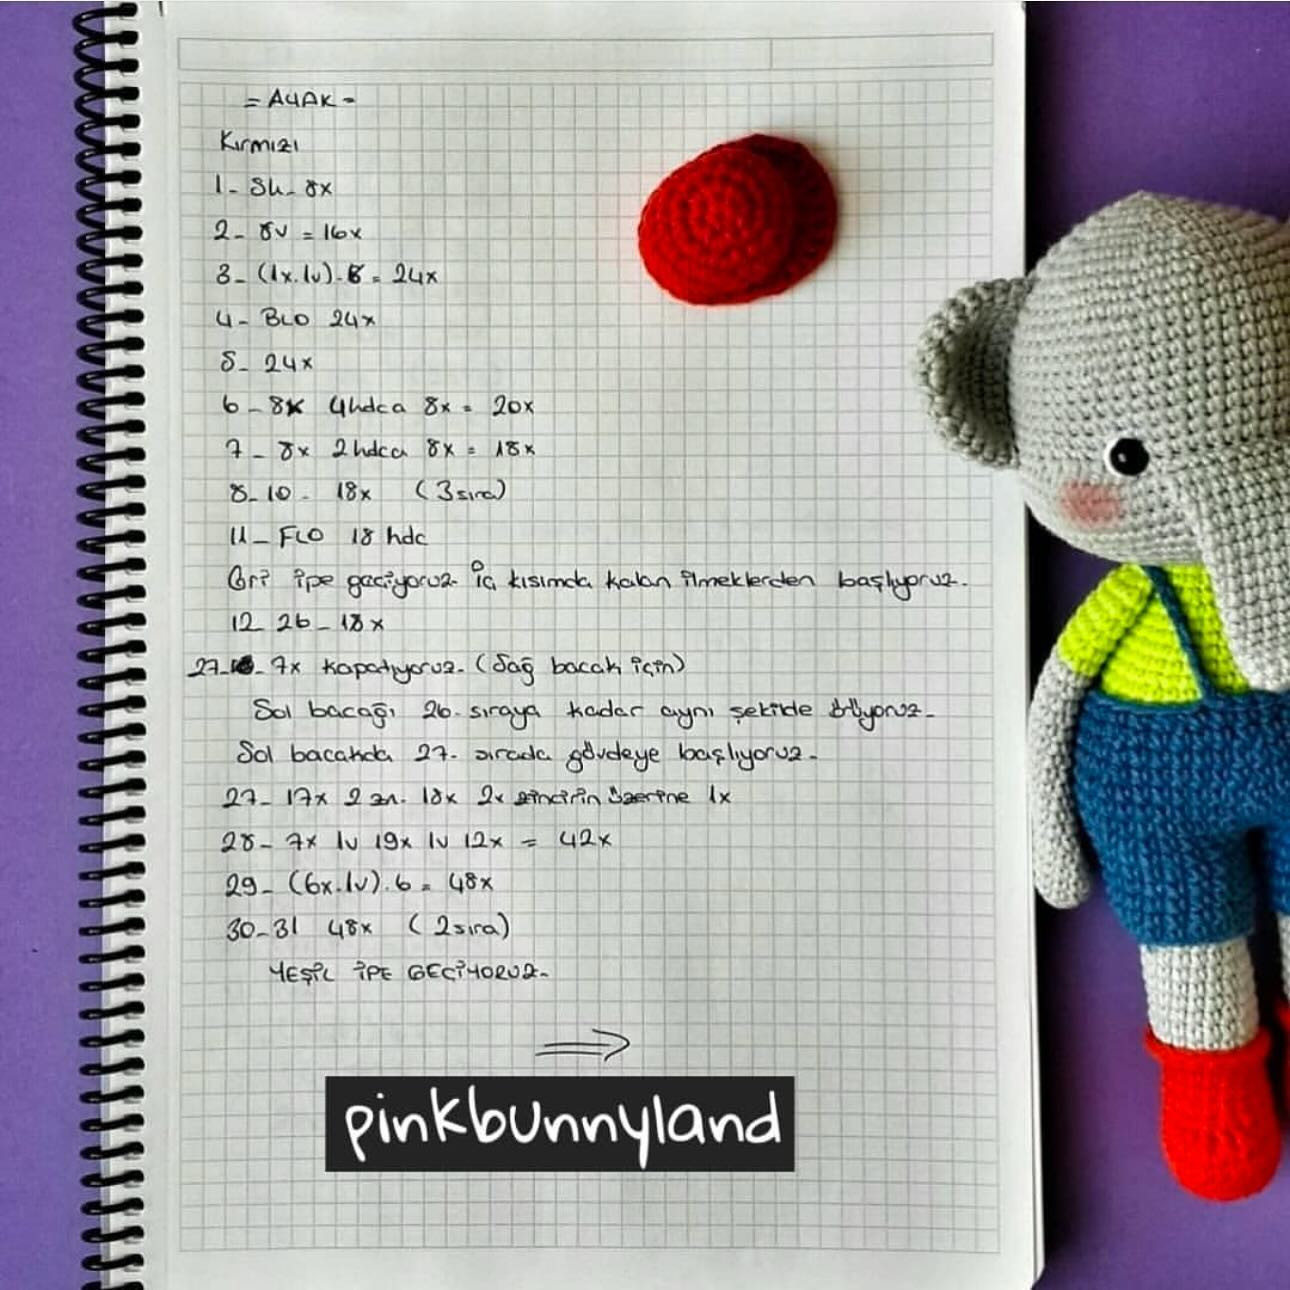 = AYAK =
Kırmızı
1- Sh- 8x
2- 8v = 16x
3- (1x.1v).8 = 24x
4- BLO 24x
5- 24x
6- 8x 4hdca 8x = 20x
7- 8x 2hdca 8x = 18x
8-10- 18x (3sıra)
11- FLO 18 hdc
Gri ipe geçiyoruz. İç kısımda kalan ilmeklerden başlıyoruz.
12-26- 18x
27- 7x kapatıyoruz. (Sağ bacak için)
Sol bacağı 26. sıraya kadar aynı şekilde örüyoruz.
Sol bacakda 27. sırada gövdeye başlıyoruz.
27- 17x 2 zn. 18x 2x zincirin üzerine 1x
28- 7x 1v 19x 1v 12x = 42x
29- (6x.1v).6 = 48x
30-31 48x (2sıra)
YEŞİL İPE GEÇİYORUZ.
pinkbunnyland